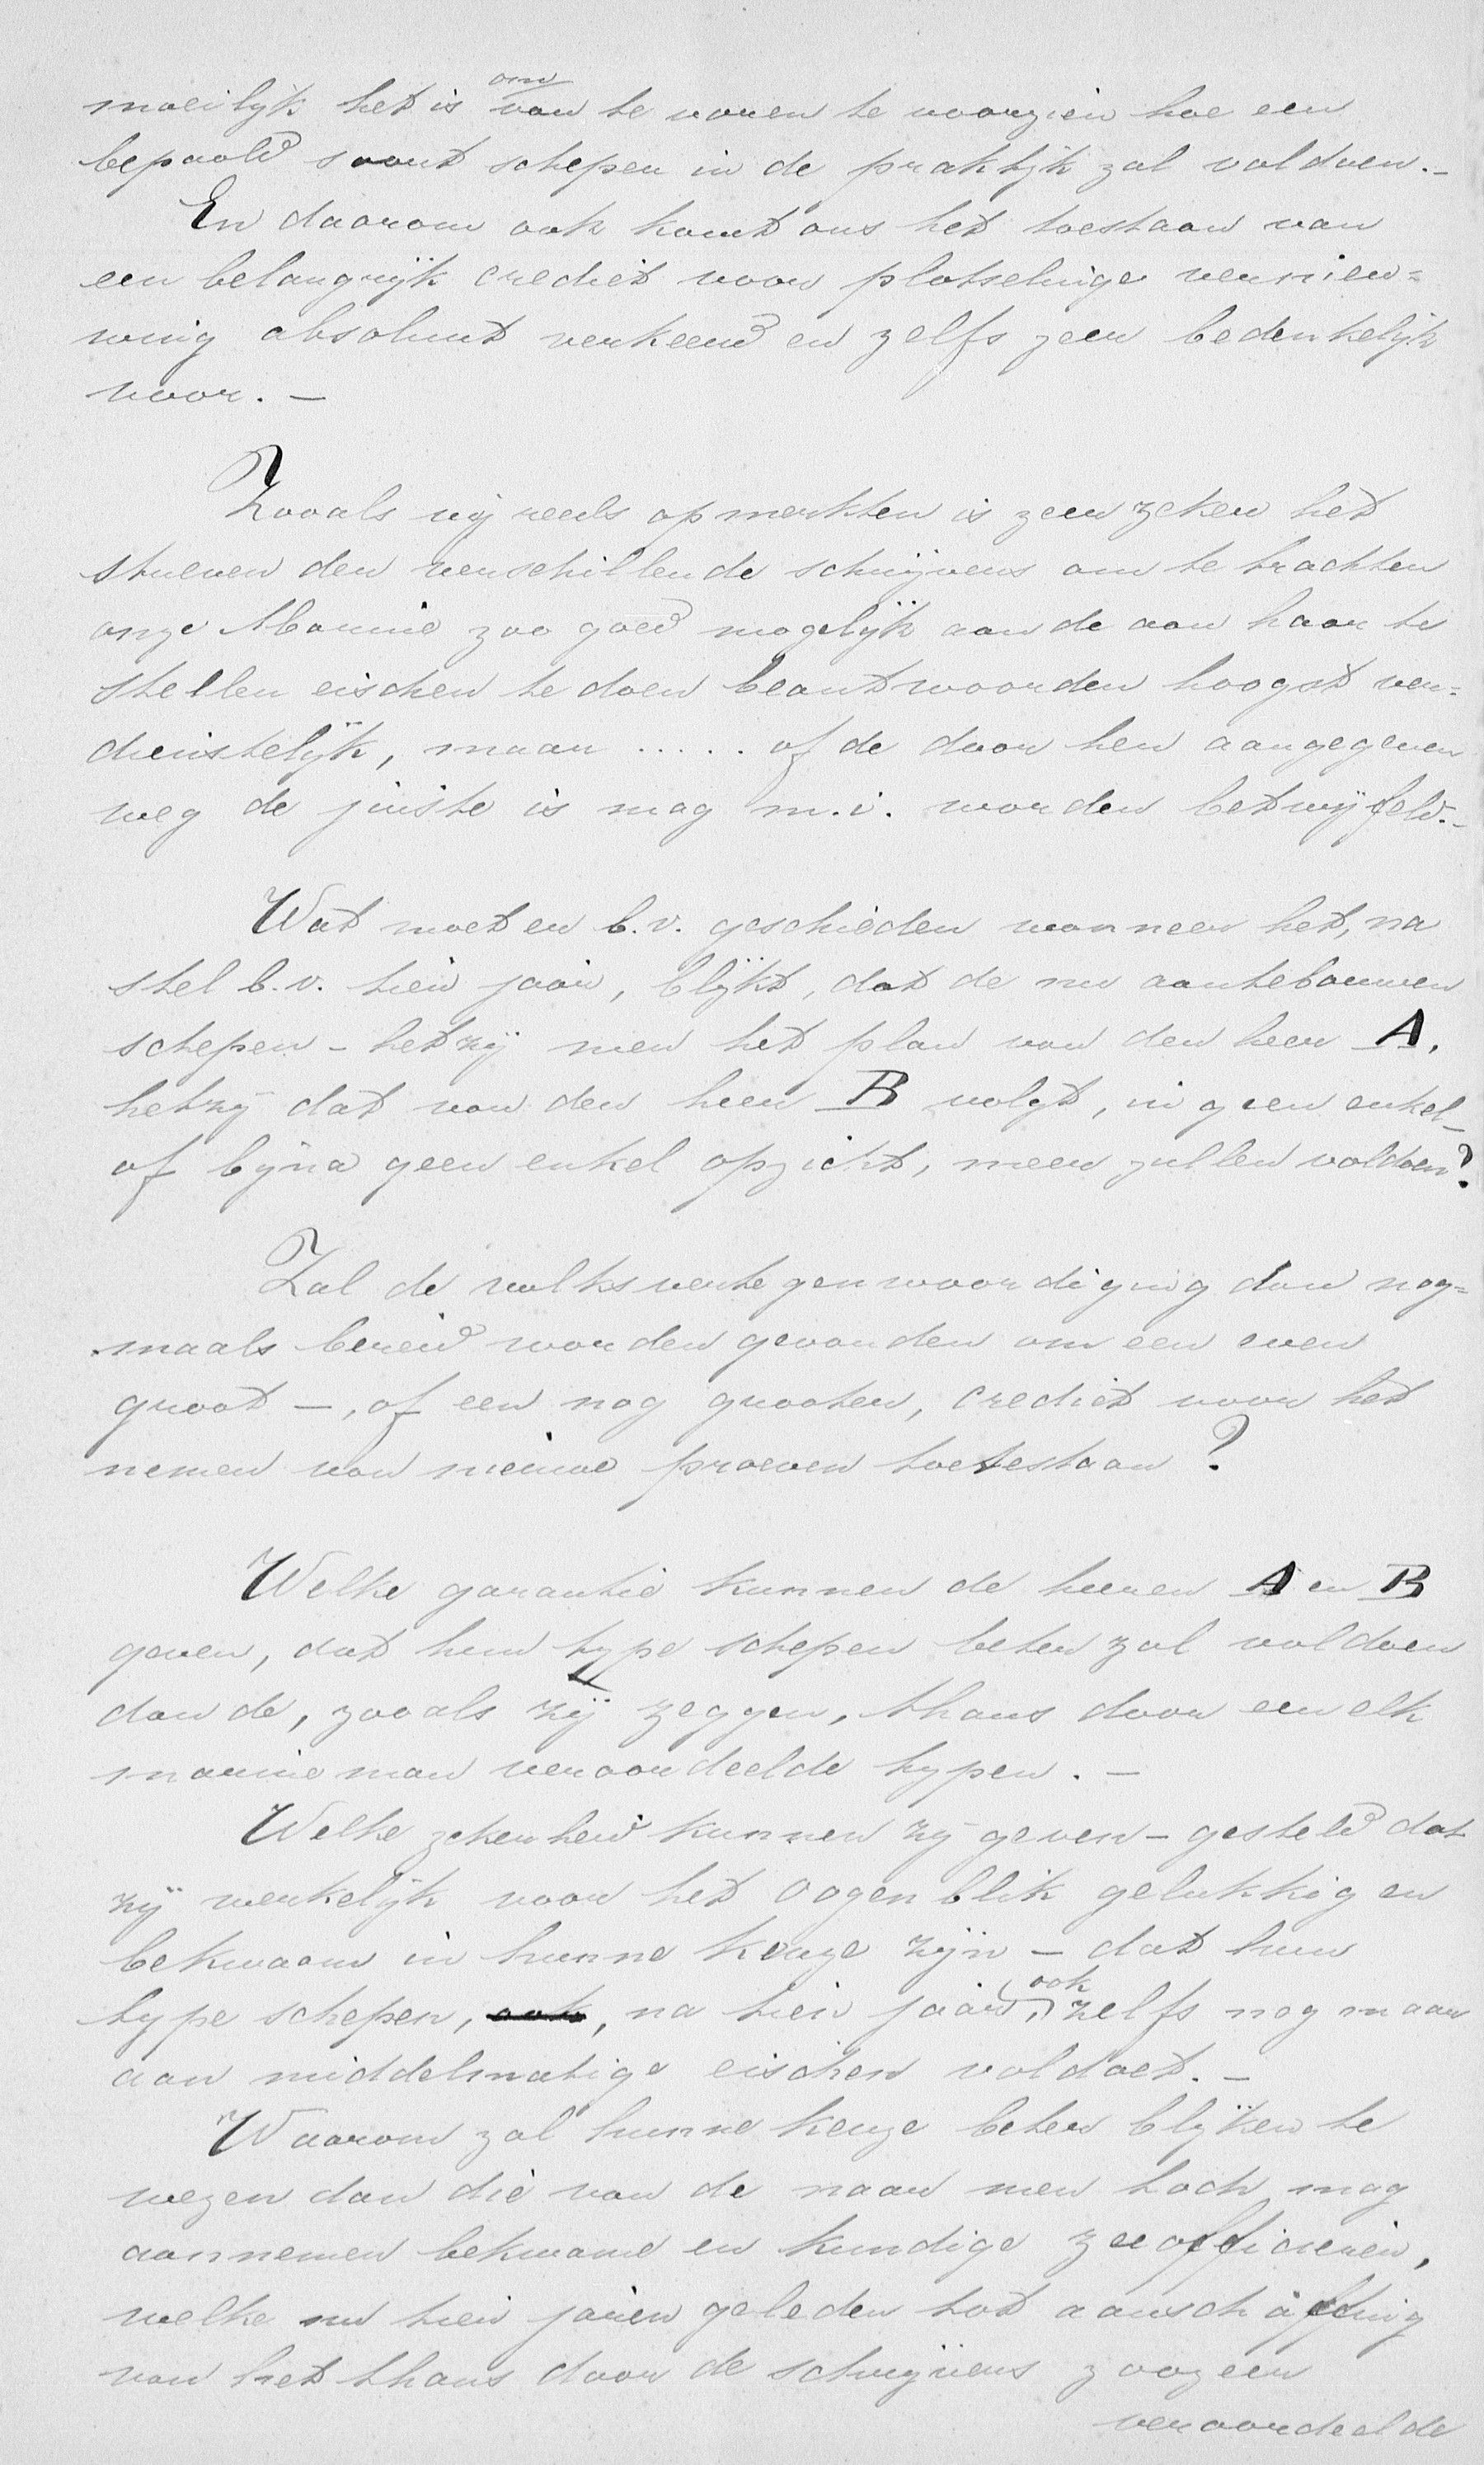 om
moeilijk het is van te voren te voorzien hoe een
bepaald soort schepen in de praktijk zal voldoen.—
En daarom ook komt ons het toestaan van
een belangrijk crediet voor plotselinge vernieu=
wing absoluut verkeerd en zelfs zeer bedenkelijk
voor. —
Zooals wij reeds opmerkten is zeer zeker het
streven der verschillende schrijvers om te trachten
onze Marine zoo goed mogelijk aan de aan haar te
stellen eischen te doen beantwoorden hoogst ver=
dienstelijk, maar ..... of de door hen aangegeven
weg de juiste is mag m.i. worden betwijfeld.—
Wat moet er b.v. geschieden wanneer het, na
stel b.v. tien jaar, blijkt, dat de nu aantebouwen
schepen - hetzij men het plan van den heer A,
hetzij dat van den heer B volgt, in geen enkel-
of bijna geen enkel opzicht, meer zullen voldoen?
Zal de volksvertegenwoordiging dan nog=
maals bereid worden gevonden om een even
groot —, of een nog grooter, crediet voor het
nemen van nieuwe proeven toetestaan?
Welke garantie kunnen de heeren A en B
geven, dat hun type schepen beter zal voldoen
dan de, zooals zij zeggen, thans door een elk
marineman veroordeelde typen. —
Welke zekerheid kunnen zij geven - gesteld dat
zij werkelijk voor het oogenblik gelukkig en
bekwaam in hunne keuze zijn — dat hun
type schepen, ook, na tien jaar, ook zelfs nog maar
aan middelmatige eischen voldoet. —
Waarom zal hunne keuze beter blijken te
wezen dan die van de naar men toch mag
aannemen bekwame en kundige zeeofficieren,
welke nu tien jaren geleden tot aanschaffing
van het thans door de schrijvers zoozeer
veroordeelde